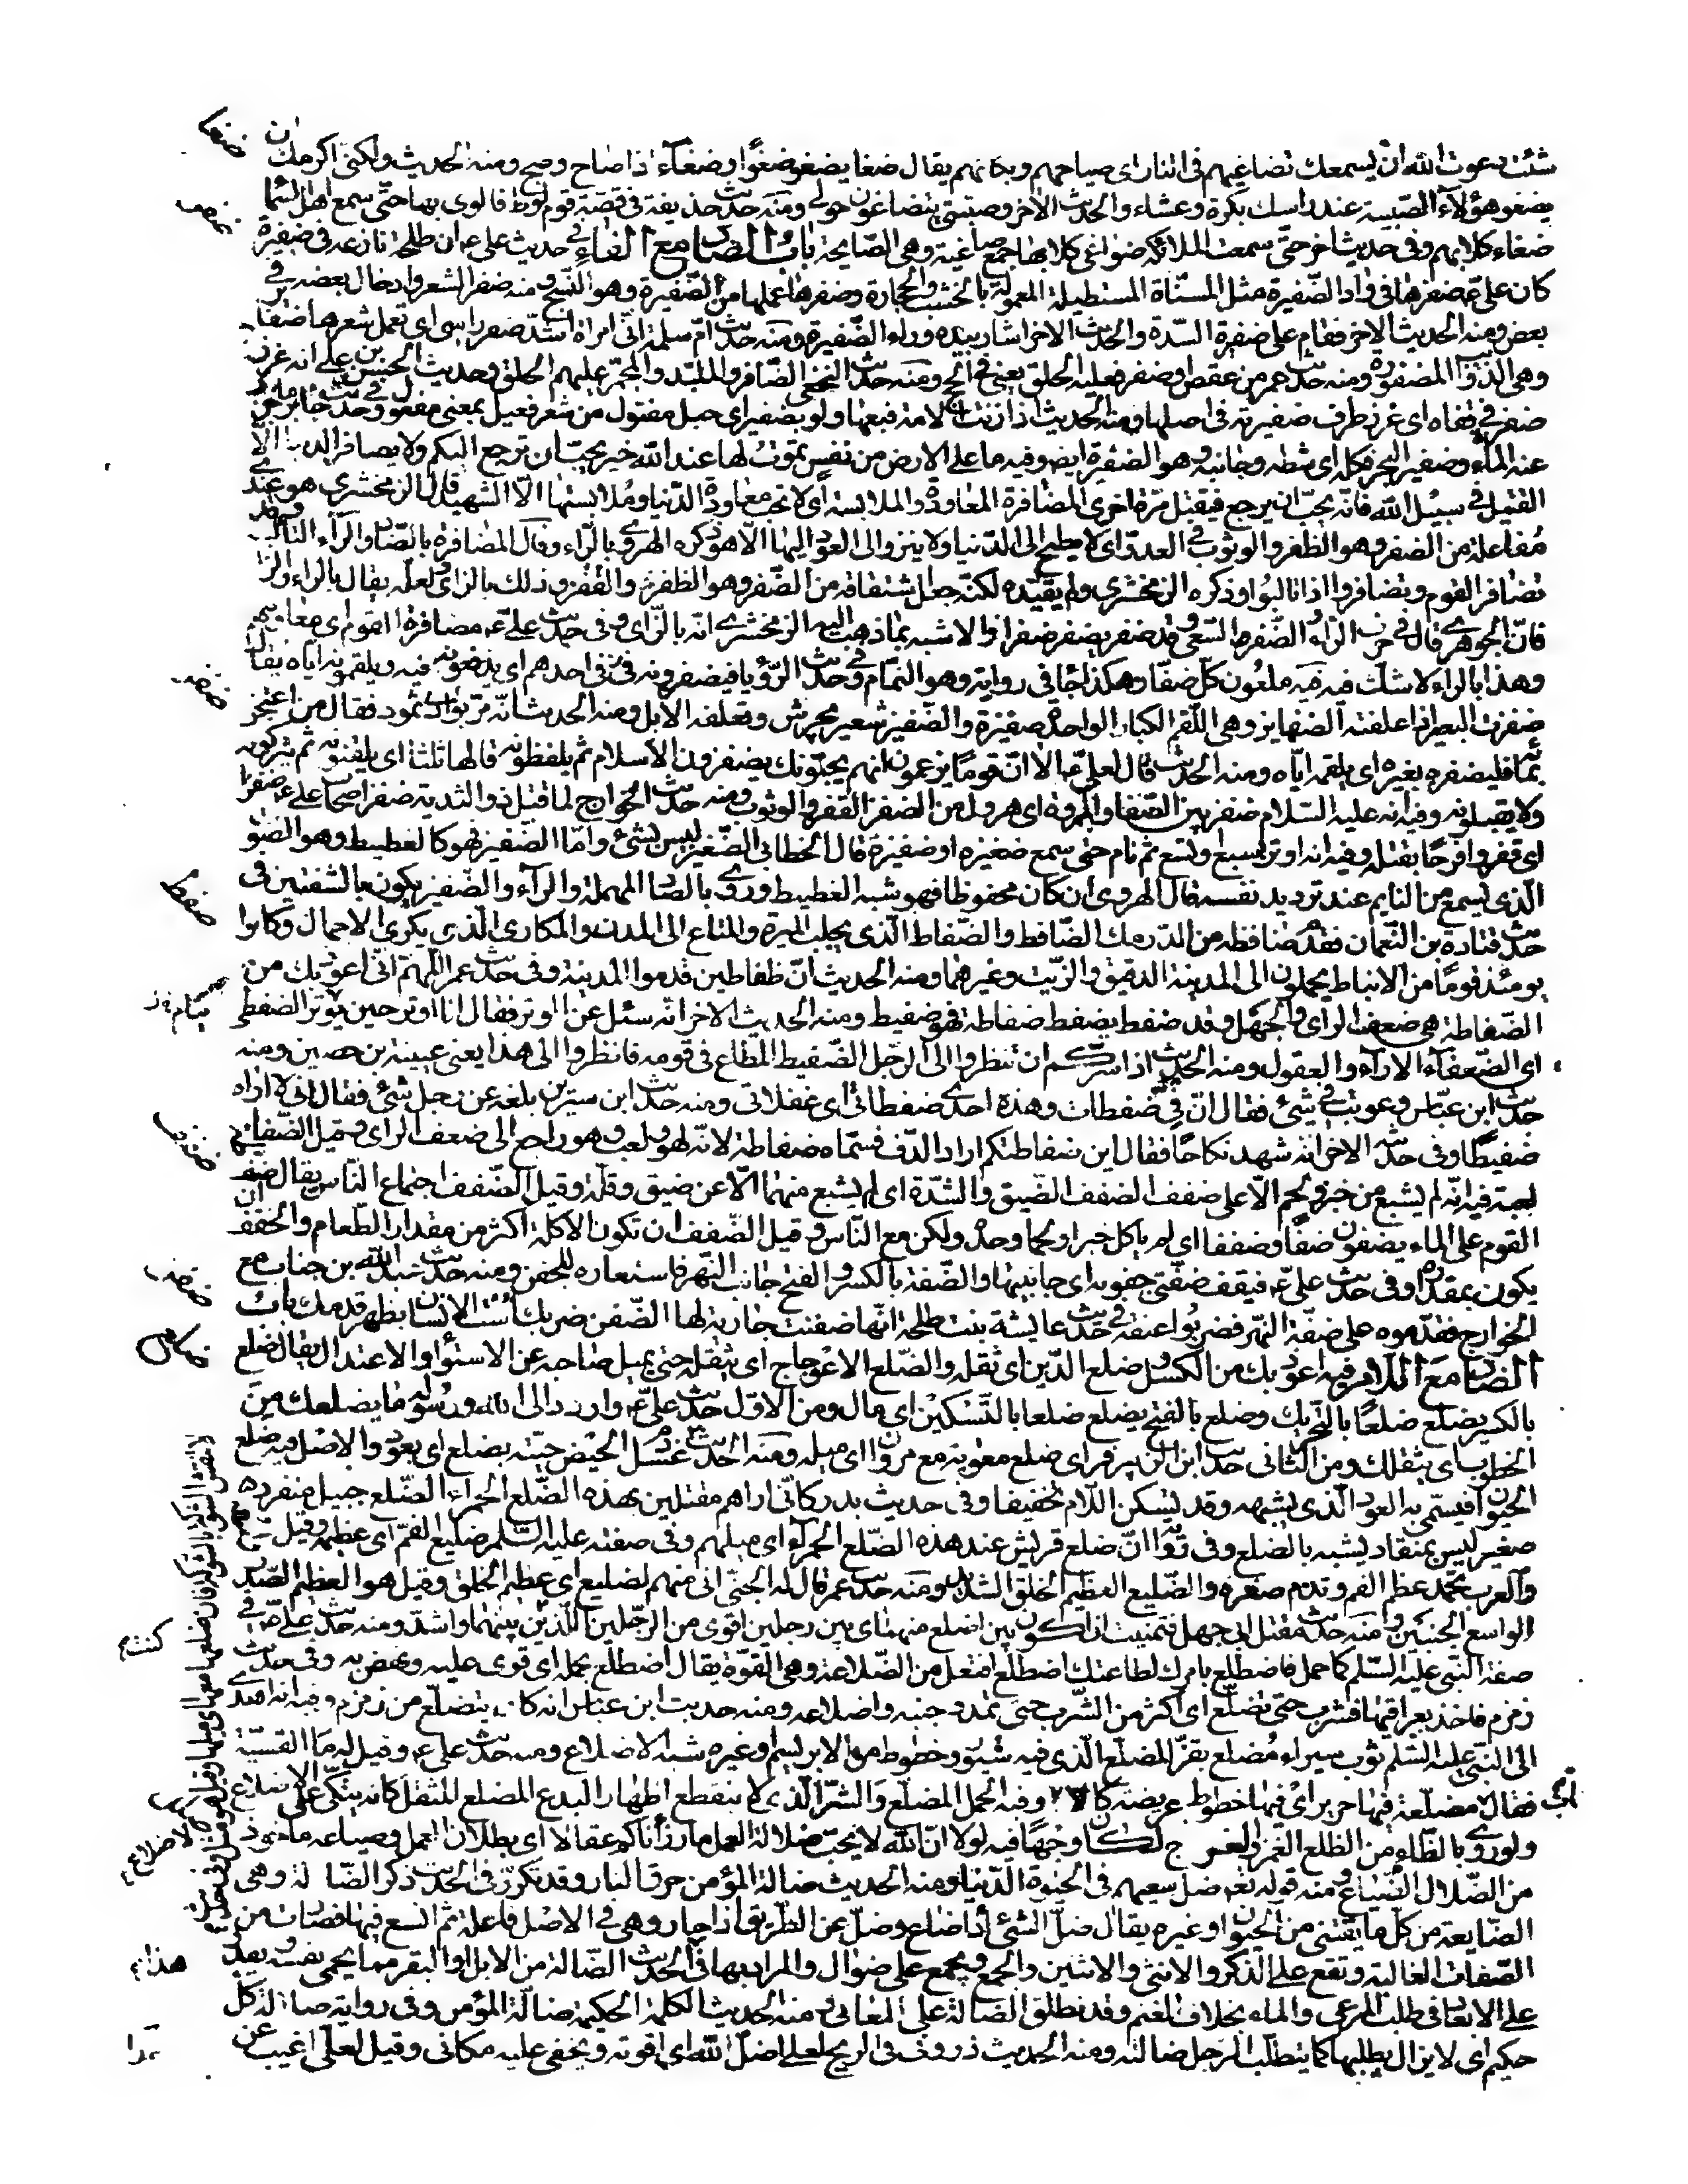 شئت دعوت الله ان يسمعك تضاغيهم فى النار اى صياحهم وبكائهم يقال ضغا يضغو ضغوا وضغاء اذا صاح وضج ومنه الحديث ولكنى اكرمك ان
يضغو هؤلاء الصبيسة عند راسك بكرة وعشاء والحديث الاخر وصبيتى يتضاغون حولى ومنه حديث حذيفة فى قصة قوم لوط فالوى بها حتى سمع اهل السما
ضغاء كلابهم وفى حديث اخر حتى سمعت الملائكة ضواغى كلابها جمع ضاغية وهى الصايحة باب الضاد مع الفاء فى حديث على عه ان طلحة نازعه فى ضفيرة
كان على عه ضفرها فى واد الضفيرة مثل المسناة المستطيلة المعمولة بالخشب والحجارة وضفرها عملها من الضفيرة وهو النسج ومنه ضفر الشعر وادخال بعضه فى
بعض ومنه الحديث الاخر فقام على ضفيرة السدة والحديث الاخر اشار بيده وراء الضفيرة ومنه حديث ام سلمة انى امراة اشد ضفر راسى اى تعمل شعرها ضفائر
وهى الذوائب المضفورة ومنه حديث عمر من عقص او ضفر فعليه الحلق يعنى فى الحج ومنه حديث النخعى الضافر والملبد والمجمر عليهم الحلق وحديث الحسن بن على انه غرز
ضفر فى قفاه اى غرز طرف ضفيرته فى اصلها ومنه الحديث اذا زنت الامة فبعها ولو بضفير اى حبل مفتول من شعر فعيل بمعنى مفعول وحديث جابر ما جزر
عنه الماء وضفير البحر فكله اى شطه وجانبه وهو الضفيرة ايضا وفيه ما على الارض من نفس تموت لها عند الله خير يحب ان ترجع اليكم ولا يضافر الدنيا الا
القتيل فى سبيل الله فانه يحب ان يرجع فيقتل مرة اخرى المضافرة المعاودة والملابسة اى لا تحب معاودة الدنيا وملابستها الا الشهيد قال الزمخشرى هو عندى
مفاعلة من الضفر وهو الظفر والوثوب فى العدو اى لا يطمح الى الدنيا ولا ينزو الى العود اليها الا هو ذكره الهروى بالراء وقال المضافرة بالضاد والراء التألب
تضافر القوم وتضافروا اذا تالبوا وذكره الزمخشرى ولم يقيده لكنه جعل اشتقاقه من الضفر وهو الظفر والقفز وذلك بالزاى ولعله يقال بالراء والزاى
فان الجوهرى قال فى حرف الراء والضفر السعى وقد ضفر يضفر ضفرا والاشبه بما ذهب اليه الزمخشرى انه بالزاى وفى حديث على عه مضافرة القوم اى معاونتهم
وهذا بالراء لاشك فيه فيه ملعون كل ضفاز هكذا جا فى رواية وهو النمام وفى حديث الرؤيا فيضفزونه فى فى احدهم اى يدفعونه فيه ويلقمونه اياه يقال
ضفزت البعير اذا علفته الضفايز وهى اللقم الكبار الواحدة ضفيزة والضفيز شعير مجرش وتعلفه الابل ومنه الحديث انه مر بوادى ثمود فقال من اعتجن
بمائه فليضفزه بعيره اى يلقمه اياه ومنه الحديث قال لعلى عه الا ان قوما يزعمون انهم يحبونك يضفزون الاسلام ثم يلفظونه قالها ثلثا اى يلقنونه ثم يتركونه
ولا يقبلونه وفيه انه عليه السلام ضفز بين الصفا والمروة اى هرول من الضفز القفز والوثوب ومنه حديث الخوارج لما قتل ذو الثدية ضفز اصحاب على عه ضفزا
اى قفزوا فرحا بقتله وفيه انه اوتر بسبع او تسع ثم نام حتى سمع ضفيزه او ضفيزة قال الخطابى الضفيز ليس بشئ واما الضفيز فهو كالغطيط وهو الصوت
الذى يسمع من النايم عند ترديد نفسه قال الهروى ان كان محفوظا فهو شبه الغطيط وروى بالصاد المهملة والراء والضفيز يكون بالشفتين فى
حديث قتادة بن النعمان فقدم ضافطة من الدرمك الضافط والضفاط الذى يجلب الميرة والمتاع الى المدن والمكارى الذى يكرى الاحمال وكانوا
يومئذ قوما من الانباط يحملون الى المدينة الدقيق والزيت وغيرهما ومنه الحديث ان ضفاطين قدموا المدينة وفى حديث عمر اللهم انى اعوذ بك من
الضفاطة هى ضعف الراى والجهل وقد ضفط يضفط ضفاطة فهو ضفيط ومنه الحديث الاخر انه سئل عن الوتر فقال انا اوتر حين يوتر الضفطى
اى الضعفاء الاراء والعقول ومنه الحديث اذا سركم ان تنظروا الى الرجل الضفيط المطاع فى قومه فانظروا الى هذا يعنى عيينة بن حصين ومنه
حديث ابن عباس وعوتب فى شئ فقال ان فى ضفطات وهذه احدى ضفطاتى اى غفلاتى ومنه حديث ابن سيرين بلغه عن رجل شئ فقال انى لا اراه
ضفيطا وفى حديثه الاخر انه شهد نكاحا فقال اين ضفاطتكم اراد الدف فسماه ضفاطة لانه لهو ولعب وهو راجع الى ضعف الراى وقيل الضفاطة
لعبة فيه انه لم يشبع من خبز ولحم الا على ضفف الضفف الضيق والشدة اى لم يشبع منهما الا عن ضيق وقلة وقيل الضفف اجتماع الناس يقال ضف
القوم على الماء يضفون ضفا وضففا اى لم ياكل خبزا ولحما وحده ولكن مع الناس وقيل الضفف ان تكون الاكلة اكثر من مقدار الطعام والحفف ان
يكون بمقداره وفى حديث على عه فيقف ضفتى جفونه اى جانبيها والضفة بالكسر والفتح جانب النهر فاستعاره للجفن ومنه حديث عبدالله بن خباب مع
الخوارج فقدموه على ضفة النهر فضربوا عنقه فى حديث عايشة بنت طلحة انها ضفنت جارية لها الضفن ضربك است الانسان بظهر قدمك باب
الضاد مع اللام فيه اعوذ بك من الكسل وضلع الدين اى ثقله والضلع الاعوجاج اى يثقله حتى يميل صاحبه عن الاستواء والاعتدال يقال ضلع
بالكسر يضلع ضلعا بالتحريك وضلع بالفتح يضلع ضلعا بالتسكين اى مال ومن الاول حديث على عه واردد الى الله ورسوله ما يضلعك من
الخطوب اى يثقلك ومن الثانى حديث ابن الزبير فراى ضلع معوية مع مروان اى ميله ومنه الحديث غسل دم الحيض حتيه بضلع اى بعود والاصل فيه ضلع
الحيوان فيسمى به العود الذى يشبهه وقد تسكن اللام تخفيفا وفى حديث بدر كانى اراهم مقتلين بهذه الضلع الحمراء الضلع جبيل منفرد
صغير ليس بمنقاد يشبه بالضلع وفى رواية ان ضلع قريش عند هذه الضلع الحمراء اى ميلهم وفى صفته عليه السلم ضليع الفم اى عظيمه وقيل
والعرب تحمد عظم الفم وتذم صغره والضليع العظيم الخلق الشديد ومنه حديث عمر قال له الجنى انى منهم لضليع اى عظيم الخلق وقيل هو العظيم الصدر
الواسع الجنبين ومنه حديث مقتل ابى جهل فتمنيت ان اكون بين اضلع منهما اى بين رجلين اقوى من الرجلين اللذين بينهما واشد ومنه حديث على عه فى
صفة النبى عليه السلم كما حمل فاضطلع بامرك لطاعتك اضطلع افتعل من الضلاعة وهى القوة يقال اضطلع بحمله اى قوى عليه ونهض به وفى حديث
زمزم فاخذ بعراقيها فشرب حتى تضلع اى اكثر من الشرب حتى تمدد جنبه واضلاعه ومنه حديث ابن عباس انه كان يتضلع من زمزم وفيه انه اهدى
الى النبى عليه السلم ثوب سيراء مضلع بقز المضلع الذى فيه سيور وخطوط من الابريسم او غيره شبه الاضلاع ومنه حديث على عه وقيل له ما القسية
فقال مضلعة فيها حرير اى فيها خطوط عريضة كالاضلاع وفيه الحمل المضلع والشر الذى لا ينقطع اظهار البدع المضلع المثقل كانه يتكئ على
ولو روى بالظاء من الظلع الغمز والعرج لكان وجها فيه لولا ان الله لا يحب ضلالة العمل ما رزأناكم عقالا اى بطلان العمل وضياعه ماخوذ
من الضلال الضياع ومنه قوله تعه ضل سعيهم فى الحيوة الدنيا ومنه الحديث ضالة المؤمن حرق النار وقد تكرر فى الحديث ذكر الضالة وهى
الضايعة من كل ما يقتنى من الحيوان وغيره يقال ضل الشئ اذا ضاع وضل عن الطريق اذا حار وهى فى الاصل فاعلة ثم اتسع فيها فصارت من
الصفات الغالبة وتقع على الذكر والانثى والاثنين والجمع ويجمع على ضوال والمراد بها فى الحديث الضالة من الابل والبقر مما يحمى نفسه ويقدر
على الابعاد فى طلب المرعى والماء بخلاف الغنم وقد تطلق الضالة على المعانى ومنه الحديث الكلمة الحكيمة ضالة المؤمن وفى رواية ضالة كل
حكيم اى لا يزال يطلبها كما يتطلب الرجل ضالته ومنه الحديث ذرونى فى الريح لعلى اضل الله اى افوته ويخفى عليه مكانى وقيل لعلى اغيب عن